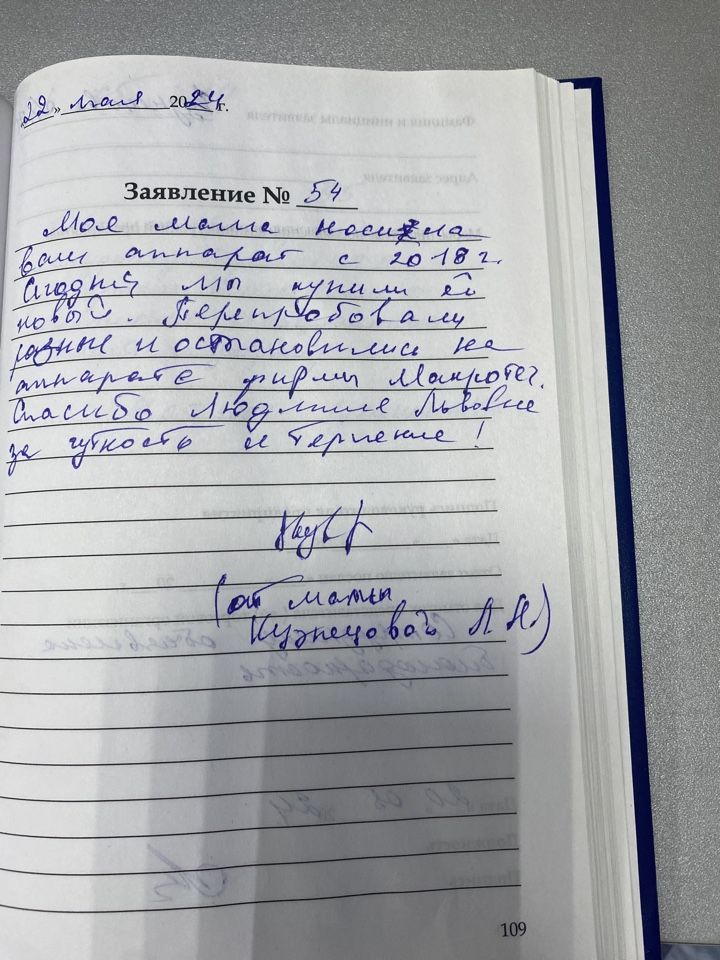 «22» мая 2024 г.
Заявление № 54
Моя мама носила
ваш аппарат с 2018 г.
Сегодня мы купили ей
новый. Перепробовали
разные и остановились на
аппарате фирмы
Спасибо Людмиле Львовне
за чуткость и терпение!
(от мамы
Кузнецовой Л.Н.)
109